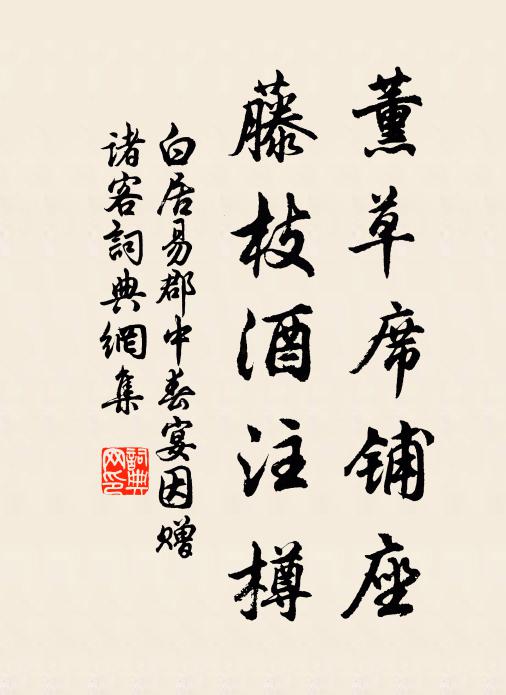 薰草席铺座
藤枝酒注樽
白居易郡中春宴因赠
诸客詞典網集
詞典网印